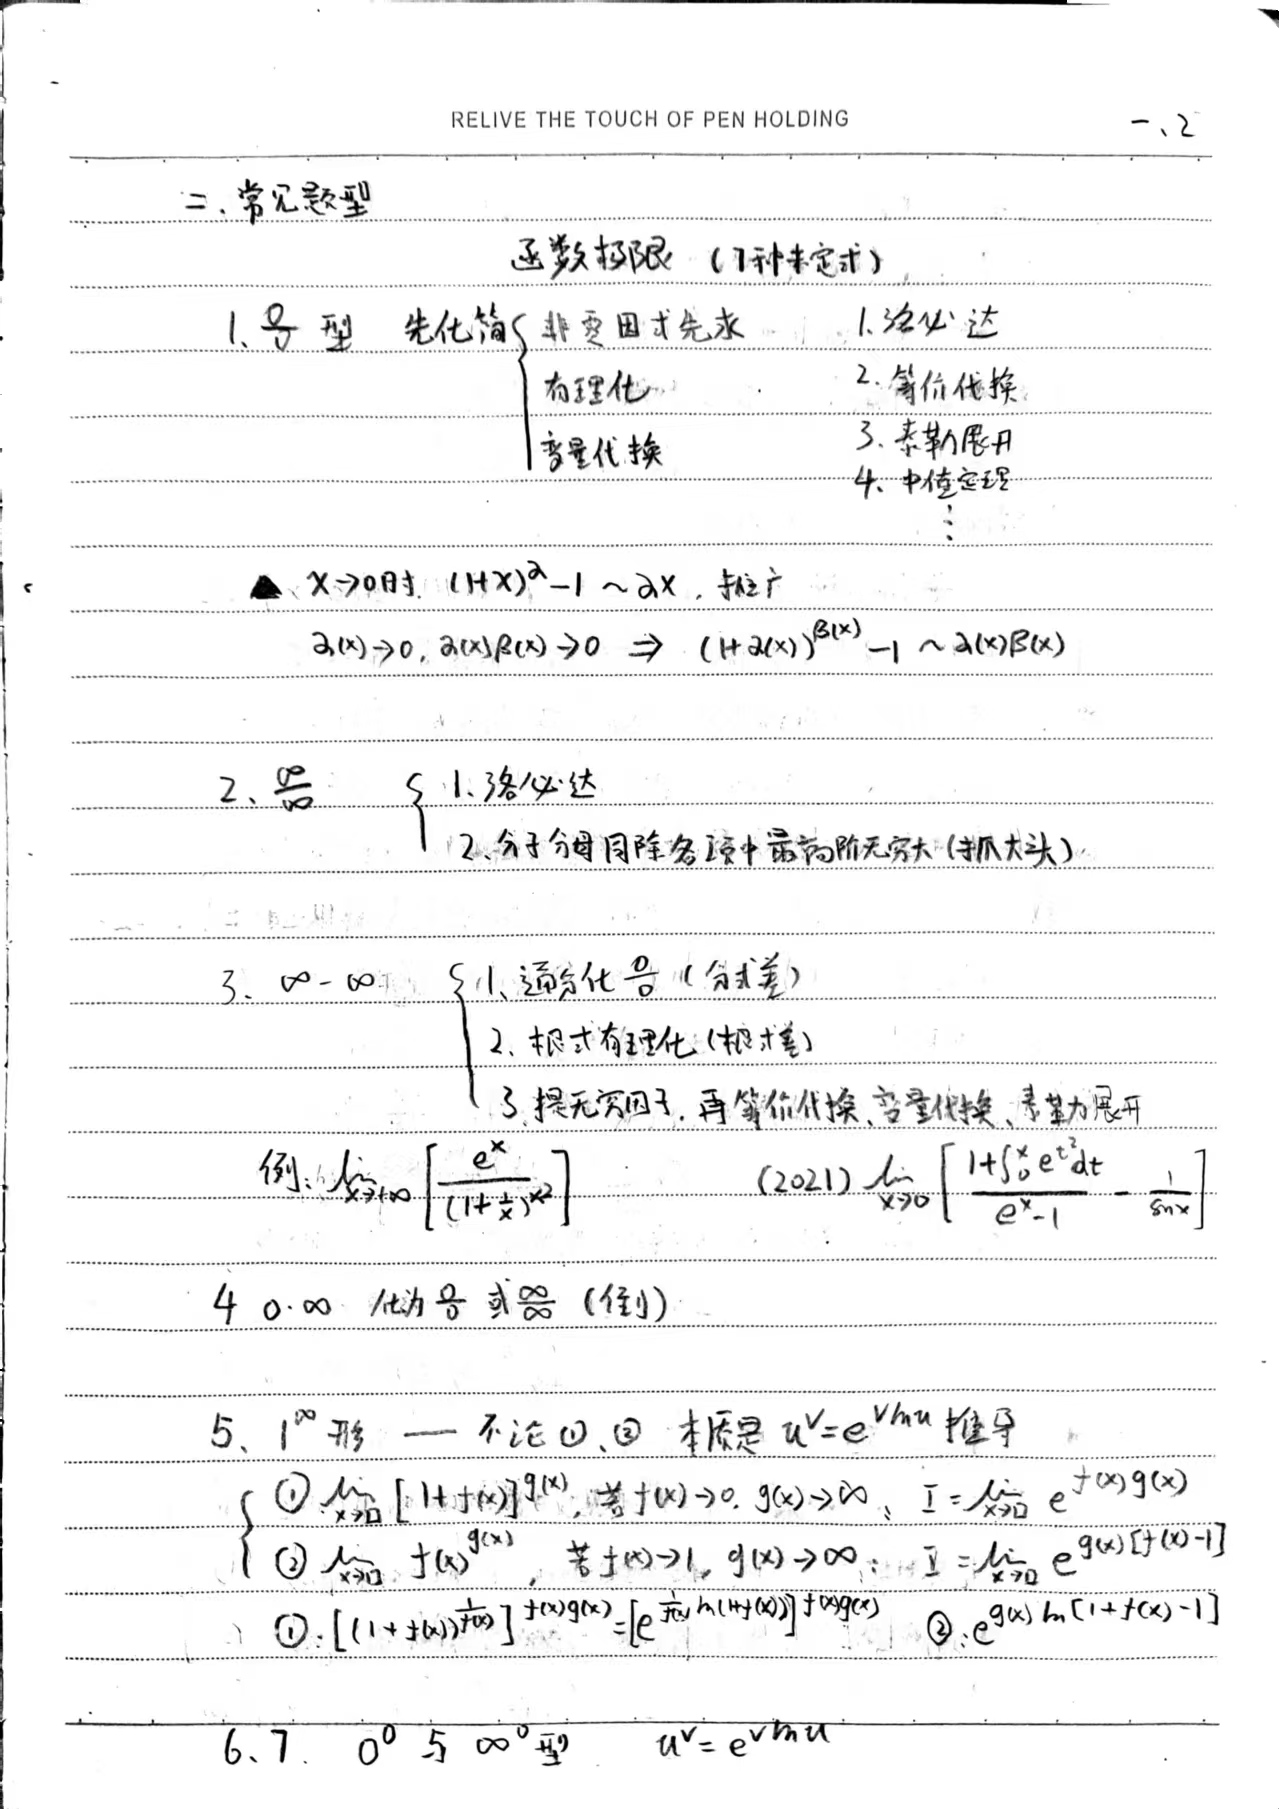 RELIVE THE TOUCH OF PEN HOLDING
一、2
二、常见题型
函数极限 (7种未定式)
1. 0/0 型 先化简 { 非零因式先求 1. 洛必达
有理化 2. 等价代换
变量代换 3. 泰勒展开
4. 中值定理
⋮
▲ x→0时. (1+x)^α -1 ~ αx . 推广
α(x)→0, α(x)β(x)→0 ⇒ (1+α(x))^β(x) -1 ~ α(x)β(x)
2、∞/∞ { 1. 洛必达
2、分子分母同除各项中最高阶无穷大 (抓大头)
3、∞-∞ { 1、通分化 0/0 (分式差)
2、根式有理化 (根式差)
3. 提无穷因子, 再等价代换、变量代换、泰勒展开
例: lim x→+∞ [ e^x / (1+1/x)^x² ] (2021) lim x→0 [ (1+∫₀^x e^t² dt) / (e^x-1) - 1/sinx ]
4 0·∞ 化为 0/0 或 ∞/∞ (倒)
5、1^∞ 形 — 不论①、② 本质是 u^v = e^vlnu 推导
{ ① lim x→□ [1+f(x)]^g(x), 若f(x)→0, g(x)→∞; I = lim x→□ e^f(x)g(x)
② lim x→□ f(x)^g(x), 若f(x)→1, g(x)→∞: I = lim x→□ e^g(x)[f(x)-1]
①: [(1+f(x))^1/f(x)]^f(x)g(x) = [e^1/f(x) ln(1+f(x))]^f(x)g(x) ②: e^g(x) ln[1+f(x)-1]
6、7. 0^0 与 ∞^0 型 u^v = e^vlnu